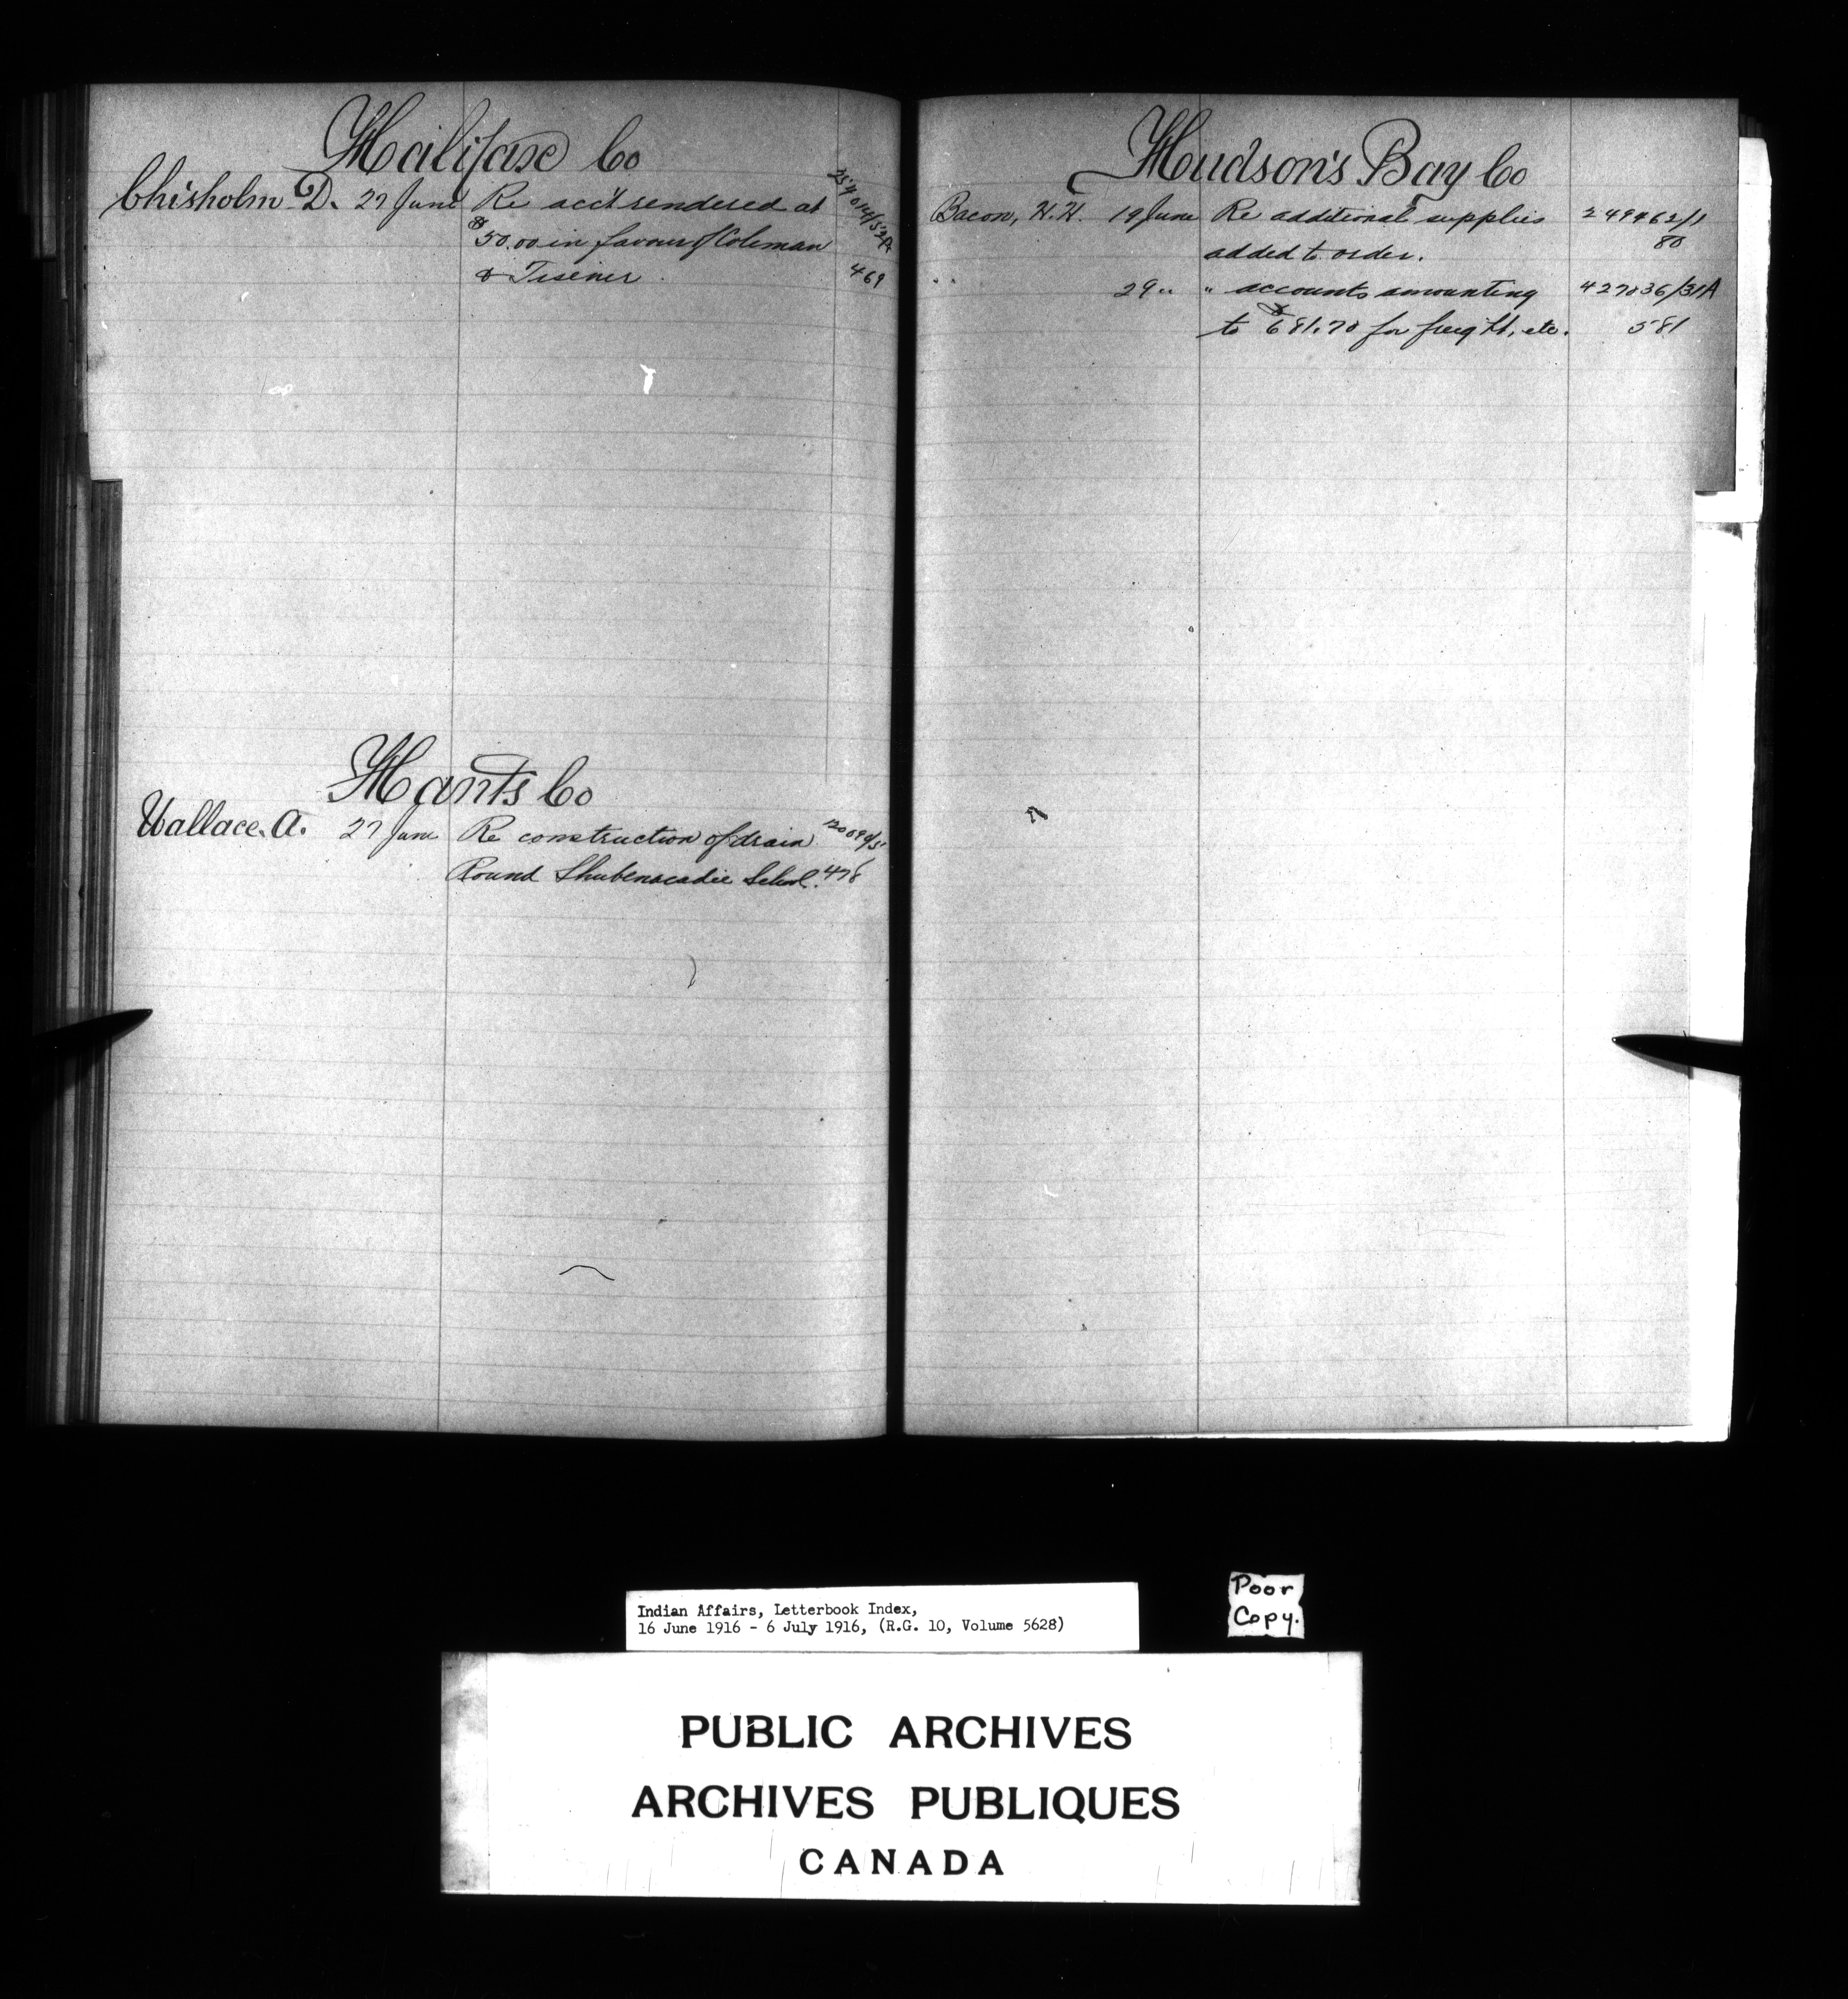 Halifax Co
Chisholm D. 27 June Re acc't rendered at
$50.00 in favour of Coleman
& 469
Hants Co
Wallace. A. 27 June Re construction of drain
Round Shubenacadie School. 478
Hudson's Bay Co
Bacon, H. H. 19 June Re additional supplies 249462/1
added to order. 80
" " 29 " " accounts amounting 427036/31A
to $681.70 for freight, etc. 581
Indian Affairs, Letterbook Index,
16 June 1916 - 6 July 1916, (R.G. 10, Volume 5628)
Poor
Copy.
PUBLIC ARCHIVES
ARCHIVES PUBLIQUES
CANADA